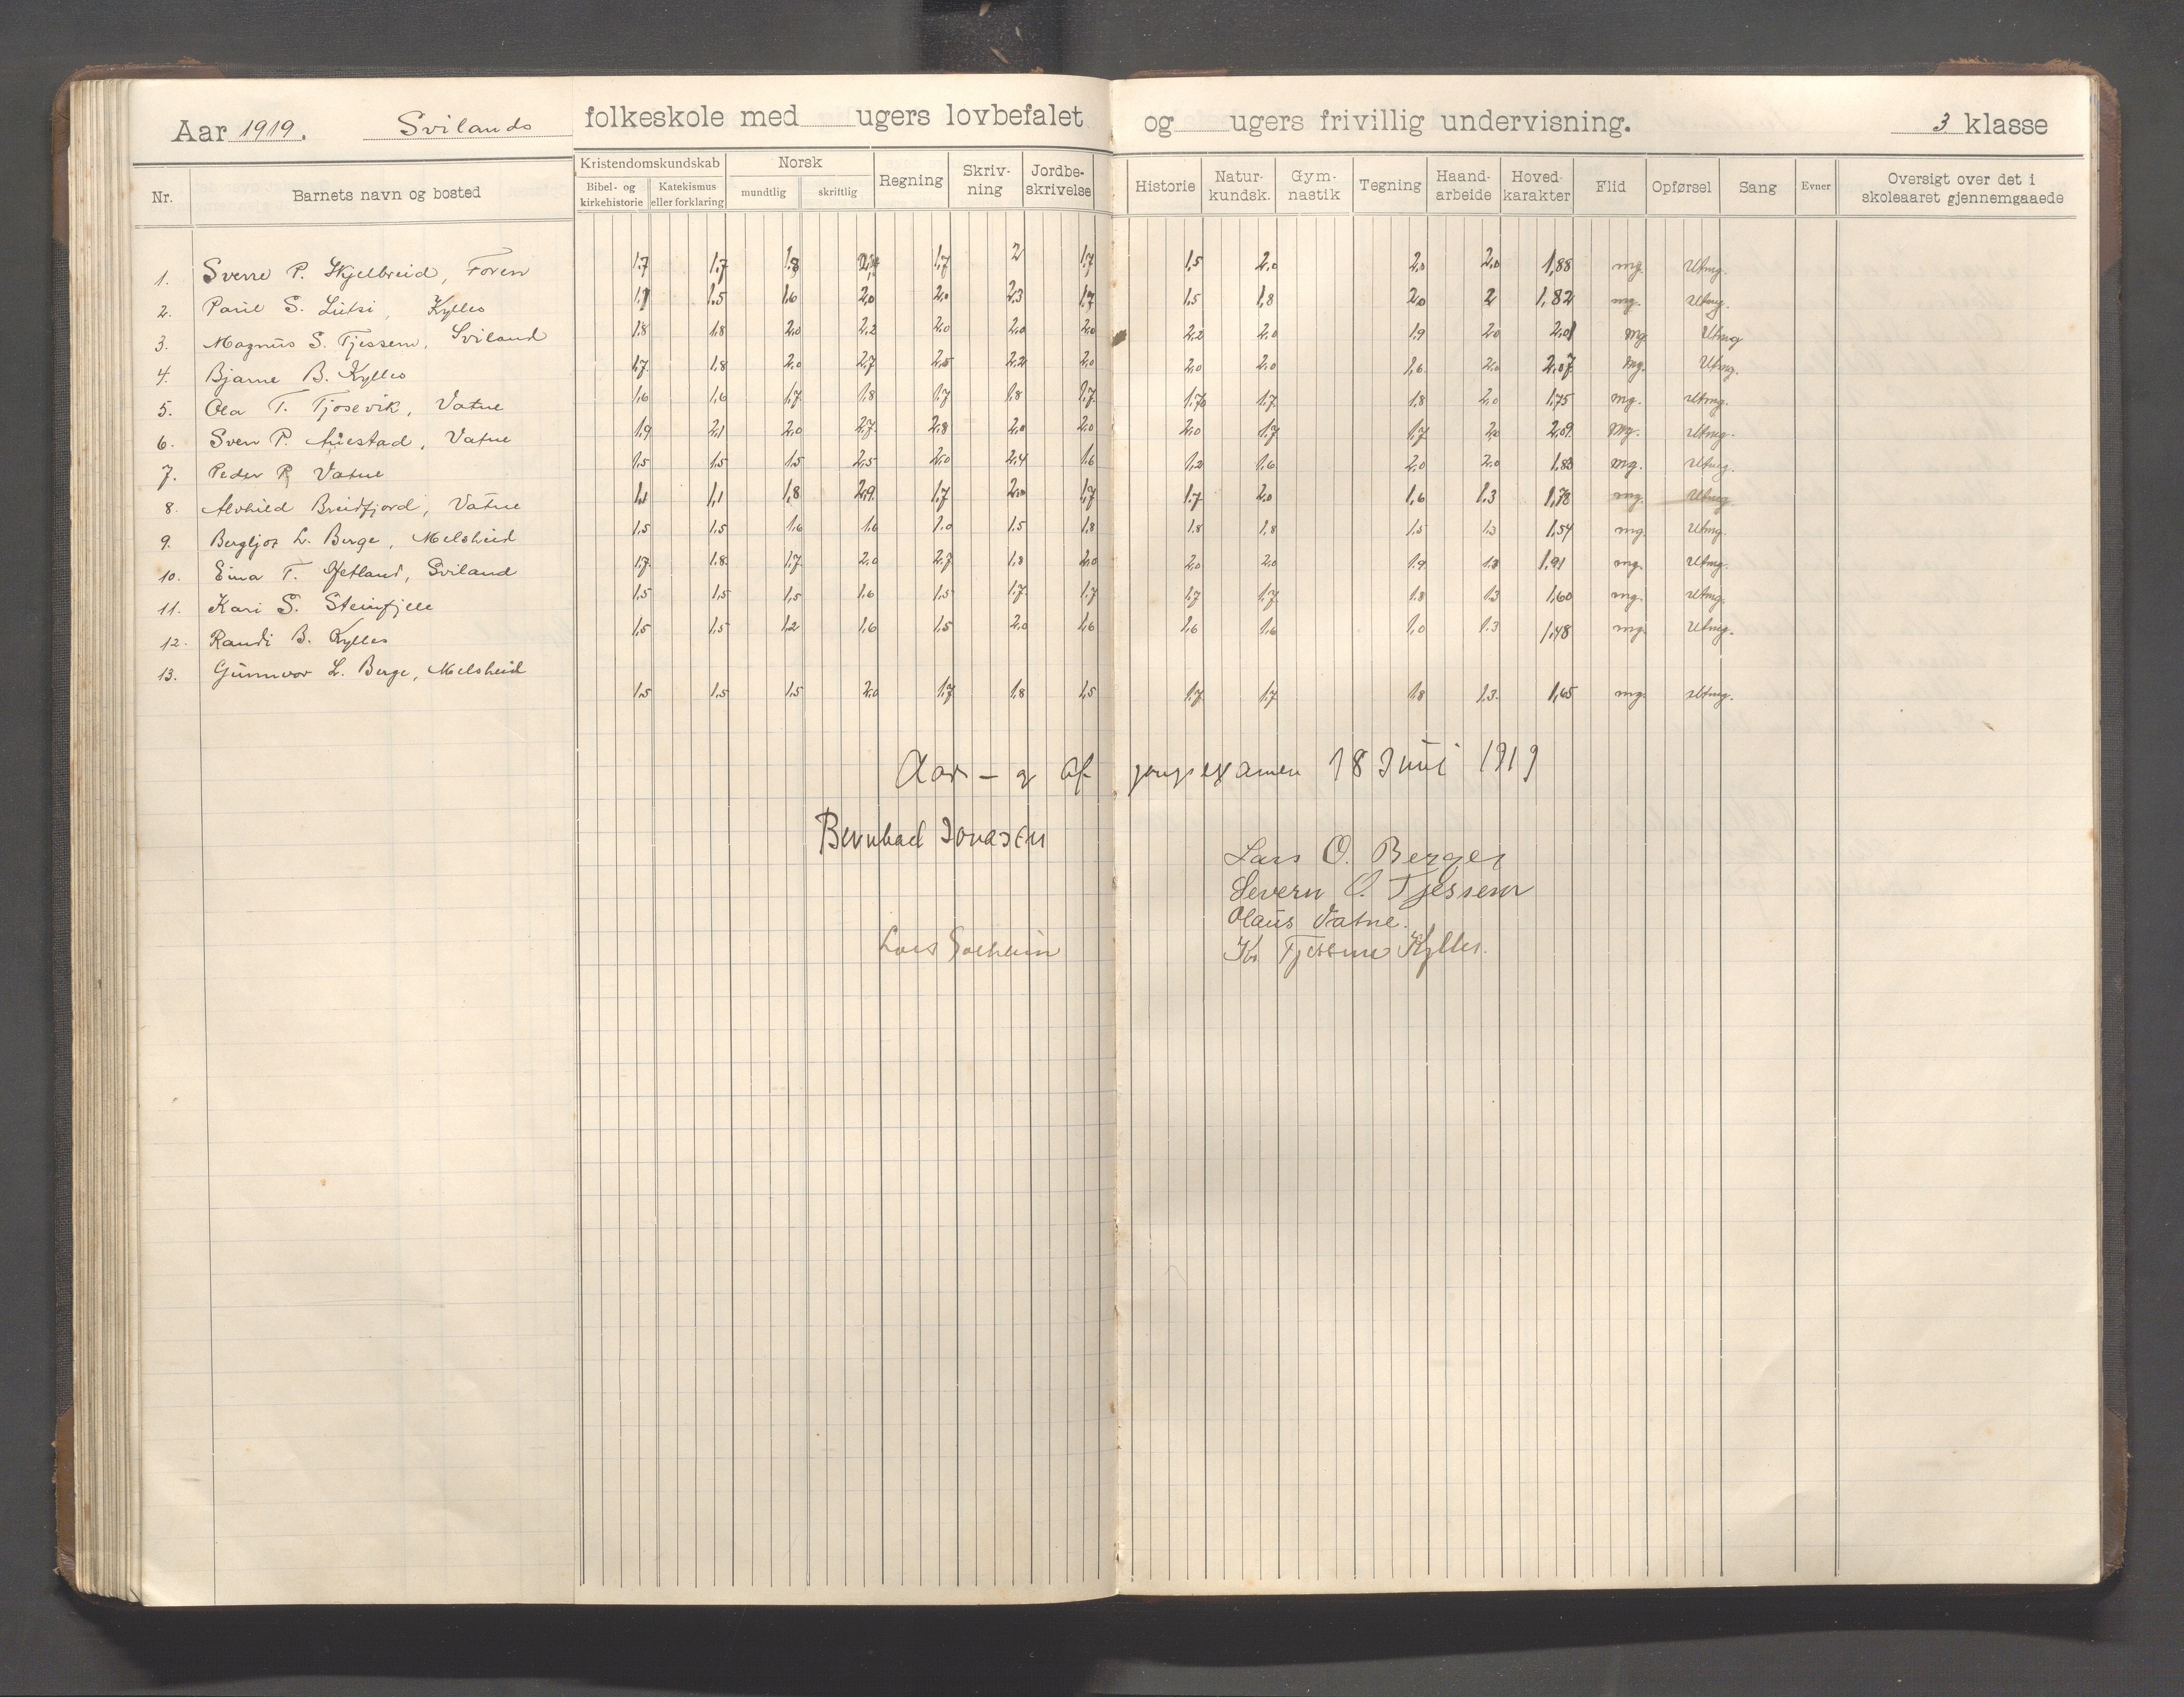 Aar 1919. Svilands folkeskole med ugers lovbefalet og ugers frivillig undervisning. 3 klasse
Nr. Barnets navn og bosted Kristendomskundskab Bibel- og kirkehistorie Katekismus eller forklaring Norsk mundtlig skriftlig Regning Skriv-ning Jordbe-skrivelse Historie Natur-kundsk. Gym-nastik Tegning Haand-arbeide Hoved-karakter Flid Opførsel Sang Evner Oversigt over det i skoleaaret gjennemgaaede
1. Sverre P. Skjelbreid, Foren 1,7 1,7 1,8 1,7 2 1,7 1,5 2,0 2,0 2,0 1,88 mg. Utmg.
2. Paul S. Lutsi, Kylles 1,7 1,5 1,6 2,0 2,0 2,3 1,7 1,5 1,8 2,0 2 1,82 mg. Utmg.
3. Magnus S. Tjessem, Sviland 1,8 1,8 2,0 2,2 2,0 2,0 2,0 2,2 2,0 1,9 2,0 2,01 mg. Utmg
4. Bjarne B. Kylles 1,7 1,8 2,0 2,7 2,5 2,2 2,0 2,0 2,0 1,6 2,0 2,07 mg. Utmg.
5. Ola T. Tjosevik, Vatne 1,6 1,6 1,7 1,8 1,7 1,8 1,7 1,70 1,7 1,8 2,0 1,75 mg. Utmg.
6. Sven P. Auestad, Vatne 1,9 2,1 2,0 2,7 2,8 2,0 2,0 2,0 1,7 1,7 2,0 2,09 mg. Utmg.
7. Peder R. Vatne 1,5 1,5 1,5 2,5 2,0 2,4 1,6 1,2 1,6 2,0 2,0 1,83 mg. Utmg.
8. Alvhild Breidfjord, Vatne 1,1 1,1 1,8 2,9 1,7 2,0 1,7 1,7 2,0 1,6 1,3 1,78 mg. Utmg
9. Bergljot L. Berge, Melsheid 1,5 1,5 1,6 1,6 1,0 1,5 1,8 1,8 1,8 1,5 1,3 1,54 mg. Utmg.
10. Eina T. Aetland, Sviland 1,7 1,8 1,7 2,0 2,7 1,8 2,0 2,0 2,0 1,9 1,8 1,91 mg. Utmg.
11. Kari S. Steinfjell 1,5 1,5 1,5 1,6 1,5 1,7 1,7 1,7 1,7 1,8 1,3 1,60 mg. Utmg.
12. Randi B. Kylles 1,5 1,5 1,2 1,6 1,5 2,0 1,6 1,6 1,6 1,0 1,3 1,48 mg. Utmg.
13. Gunnvor L. Berge, Melsheid
1,5 1,5 1,5 2,0 1,7 1,8 1,5 1,7 1,7 1,8 1,3 1,65 mg. Utmg.
Aars- og afgangsexamen 18 Juni 1919
Bernhard Jonassen
Lars O. Berge
Severin O. Tjessem
Olaus Vatne.
Lars Solheim Kr Tjessem Kylles.